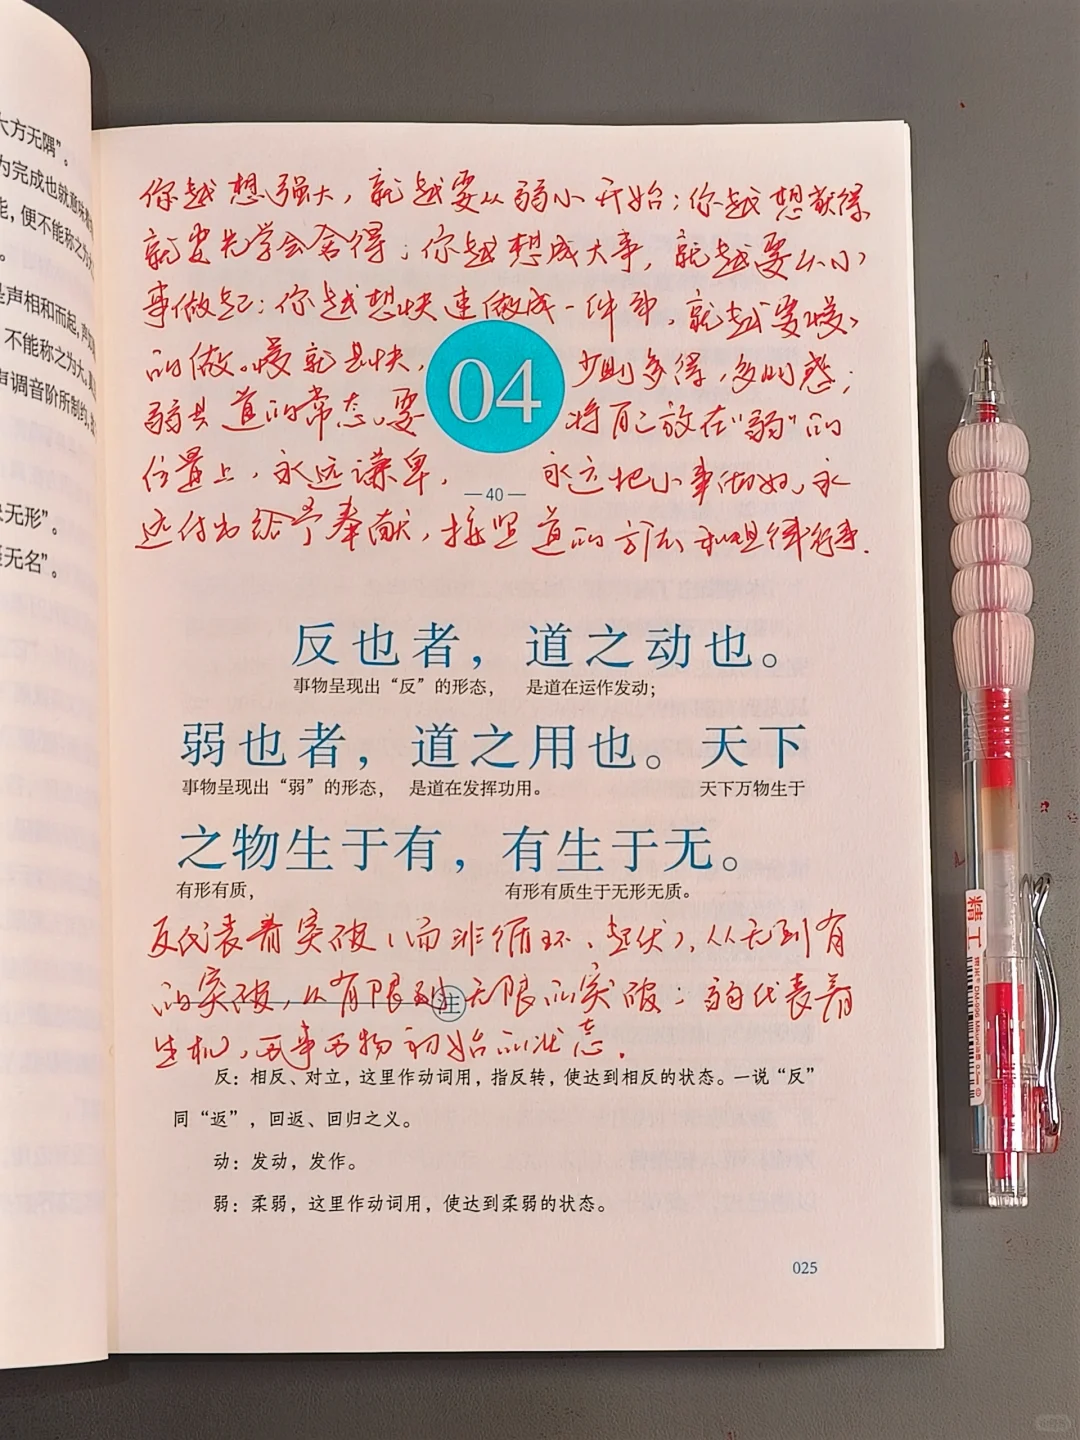 大方无隅”。
为完成也就意味着
能，便不能称之为
是声相和而起，
不能称之为大。
声调音阶所制约，
象无形”。
无名”。
你越想强大，就越要从弱小开始；你越想获得
就要先学会舍得；你越想成大事，就越要从小
事做起；你越想快速做成一件事，就越要慢慢
的做。慢就是快，少则多得，多则惑；
04
弱是道的常态。要将自己放在“弱”的
位置上，永远谦卑，永远把小事做好，永
—40—
远付出给予奉献，按照道的方法和规律行事.
反也者，道之动也。
事物呈现出“反”的形态，是道在运作发动；
弱也者，道之用也。天下
事物呈现出“弱”的形态，是道在发挥功用。天下万物生于
之物生于有，有生于无。
有形有质，有形有质生于无形无质。
反代表着突破（而非循环、起伏），从无到有
的突破，从有限到无限的突破；弱代表着
注
生机，万事万物初始的状态.
反：相反、对立，这里作动词用，指反转，使达到相反的状态。一说“反”
同“返”，回返、回归之义。
动：发动，发作。
弱：柔弱，这里作动词用，使达到柔弱的状态。
025
精工